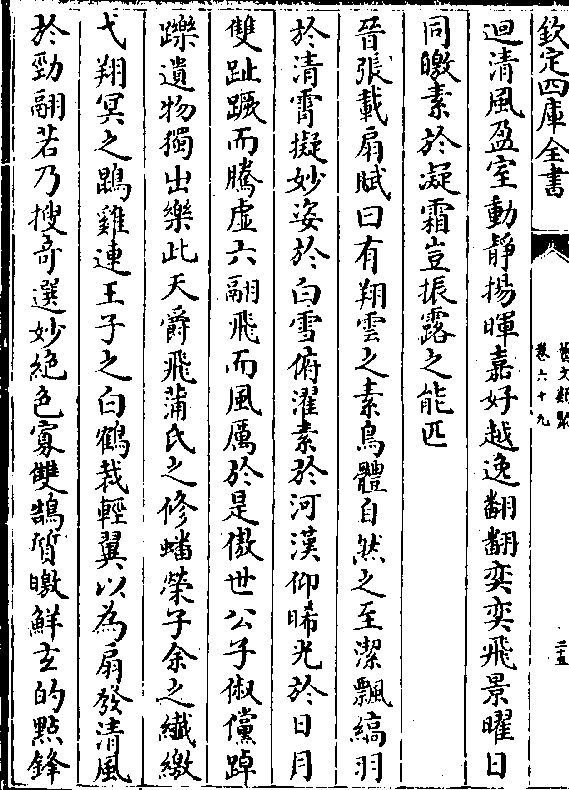 欽定四庫全書
藝文類聚
卷六十九
二五
迴清風盈室動靜揚暉嘉好越逸翻翻奕奕飛景曜日
同皦素於凝霜豈振露之能匹
晉張載扇賦曰有翔雲之素鳥體自然之至潔飄縞羽
於清霄擬妙姿於白雪俯濯素於河漢仰晞光於日月
雙趾蹶而騰虛六翮飛而風厲於是傲世公子俶儻踔
躒遺物獨出樂此天爵飛蒲氏之修蟠榮子余之纖繳
弋翔冥之鵾雞連王子之白鶴裁輕翼以為扇發清風
於勁翮若乃搜奇選妙絶色寡雙鵠質皦鮮玄的點鋒